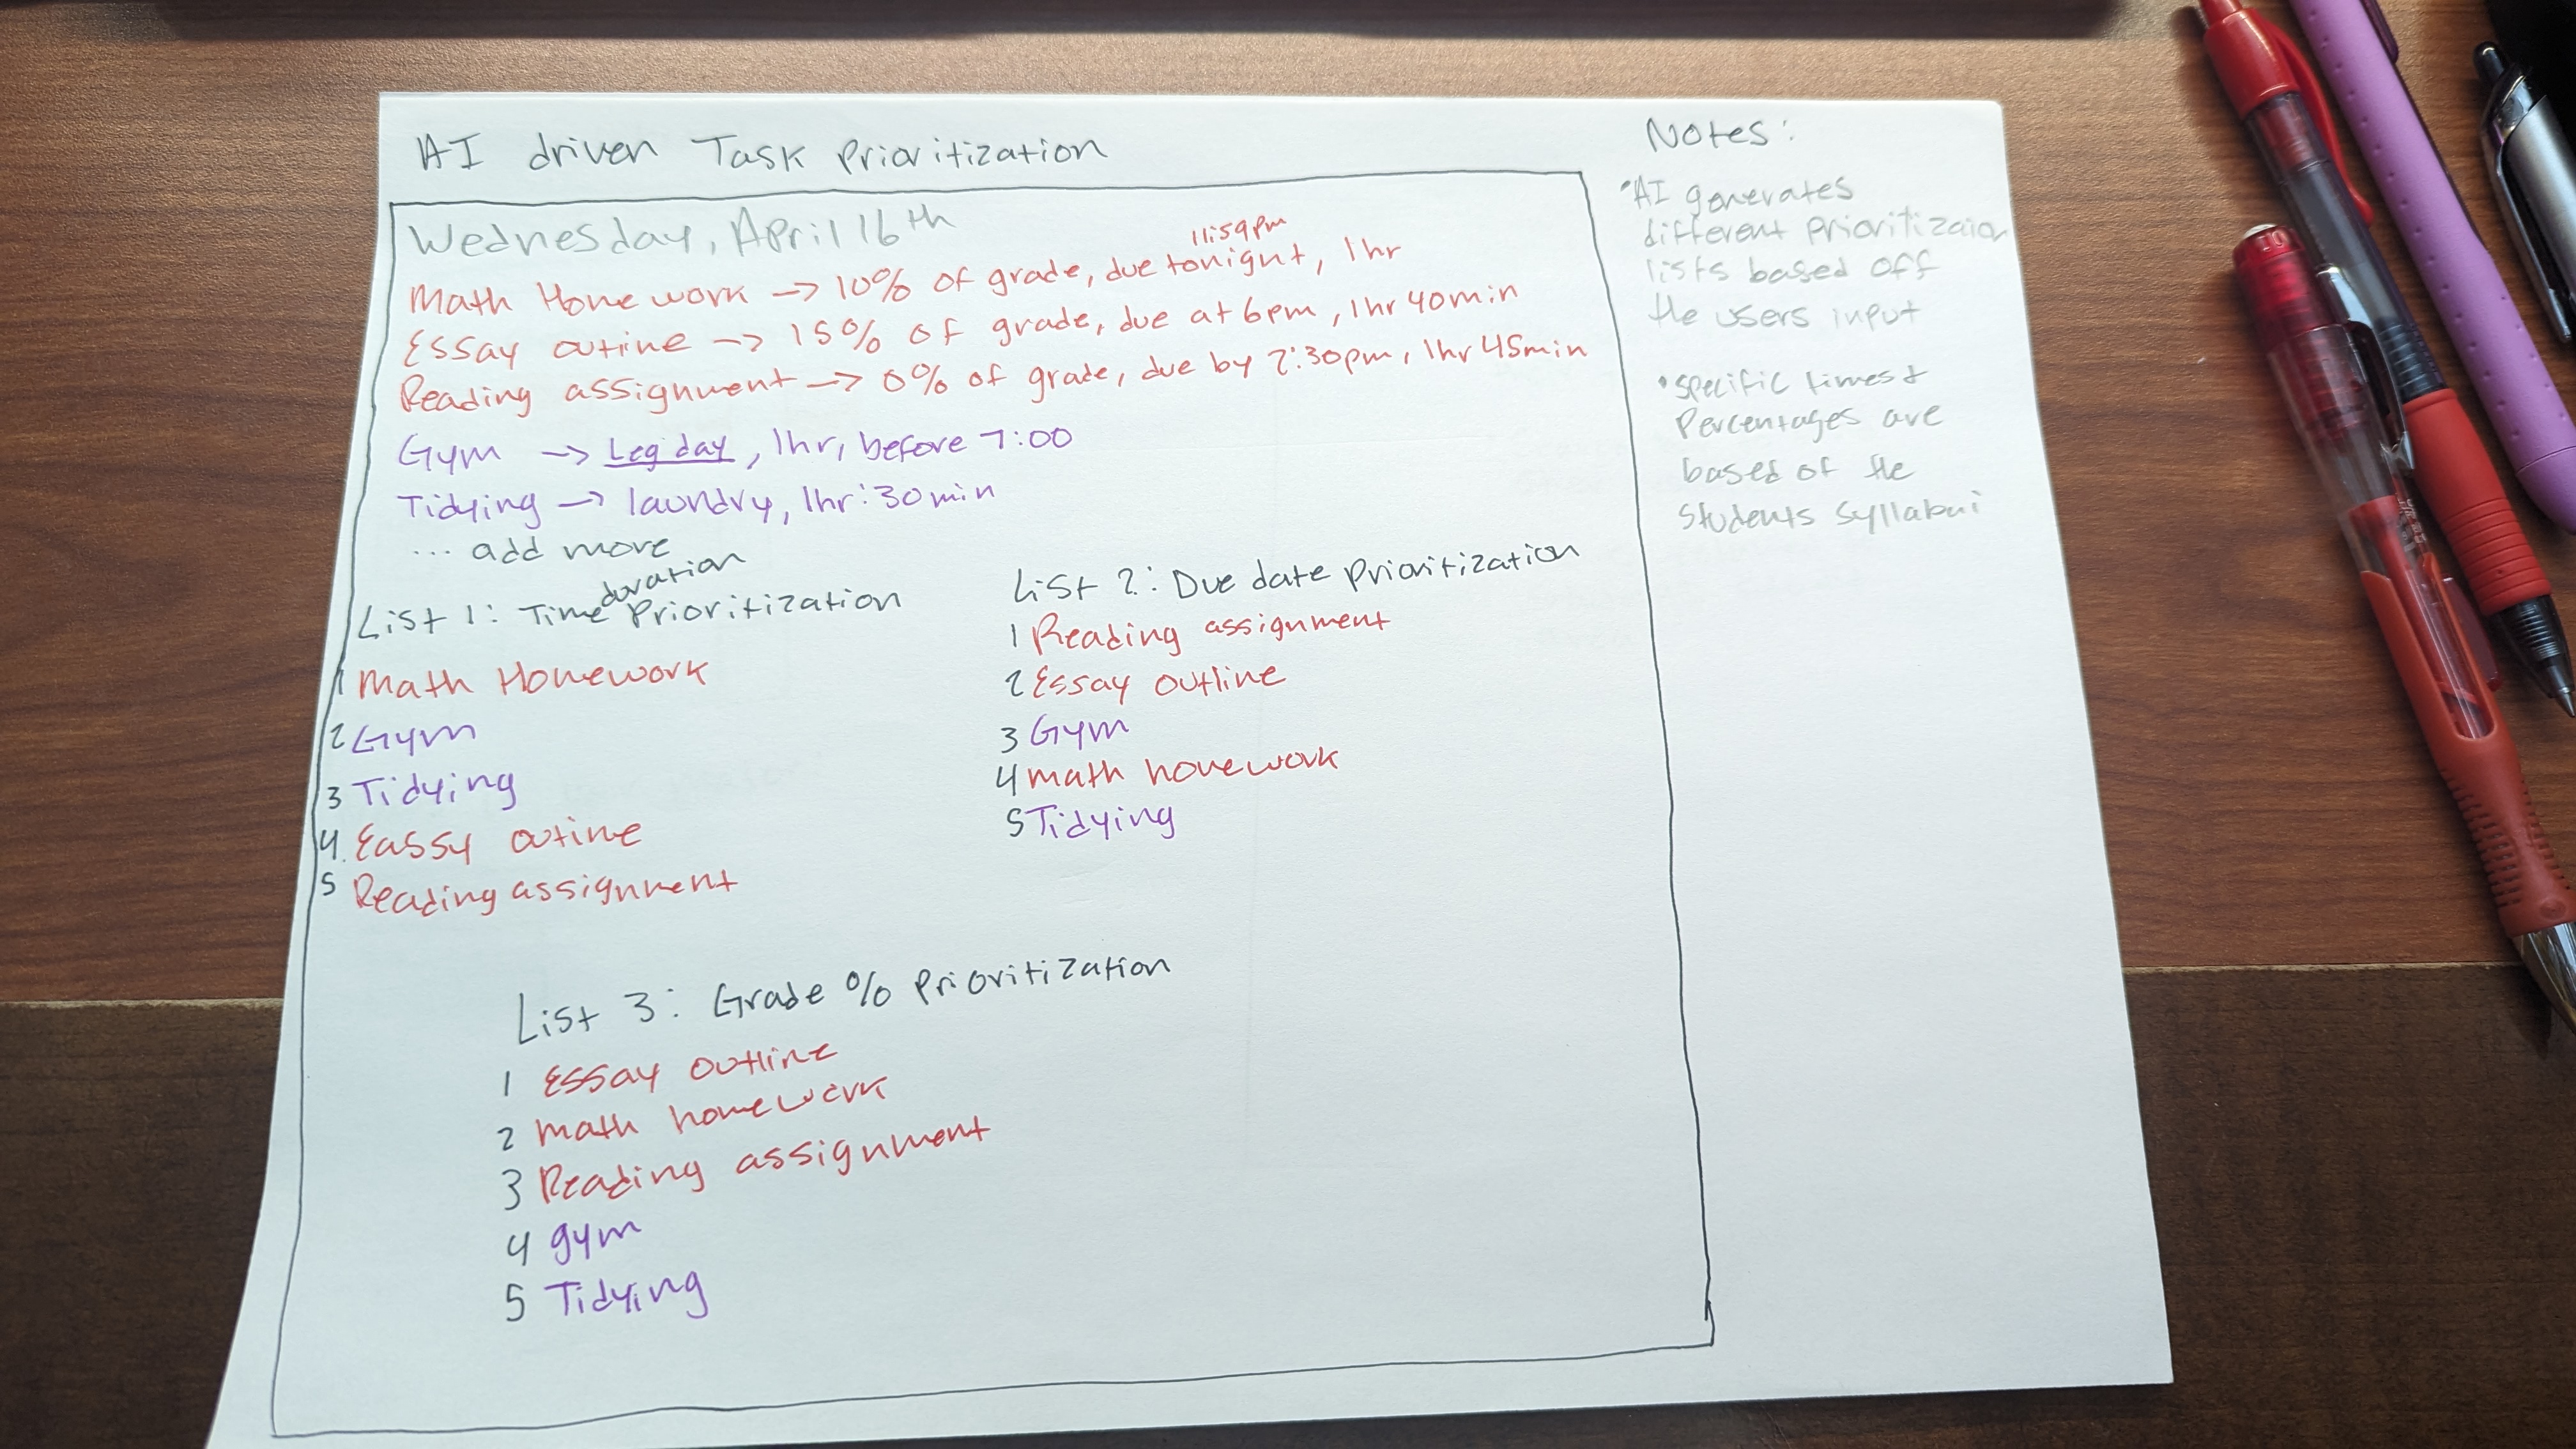 AI driven Task Prioritization
Wednesday, April 16th
11:59pm
Math Homework -> 10% of grade, due tonignt, 1hr
Essay outine -> 15% of grade, due at 6pm, 1hr 40min
Reading assignment -> 0% of grade, due by 2:30pm, 1hr 45min
Gym -> Leg day, 1hr, before 7:00
Tidying -> laundry, 1hr:30min
... add more
duration
List 1: Time Prioritization
1 Math Homework
2 Gym
3 Tidying
4. Eassy outine
5 Reading assignment
List 2: Due date Prioritization
1 Reading assignment
2 Essay outline
3 Gym
4 math homework
5 Tidying
List 3: Grade % Prioritization
1 Essay outline
2 math homework
3 Reading assignment
4 gym
5 Tidying
Notes:
• AI generates
different Prioritizaion
lists based off
the users input
• specific times &
Percentages are
based of the
Students syllabui